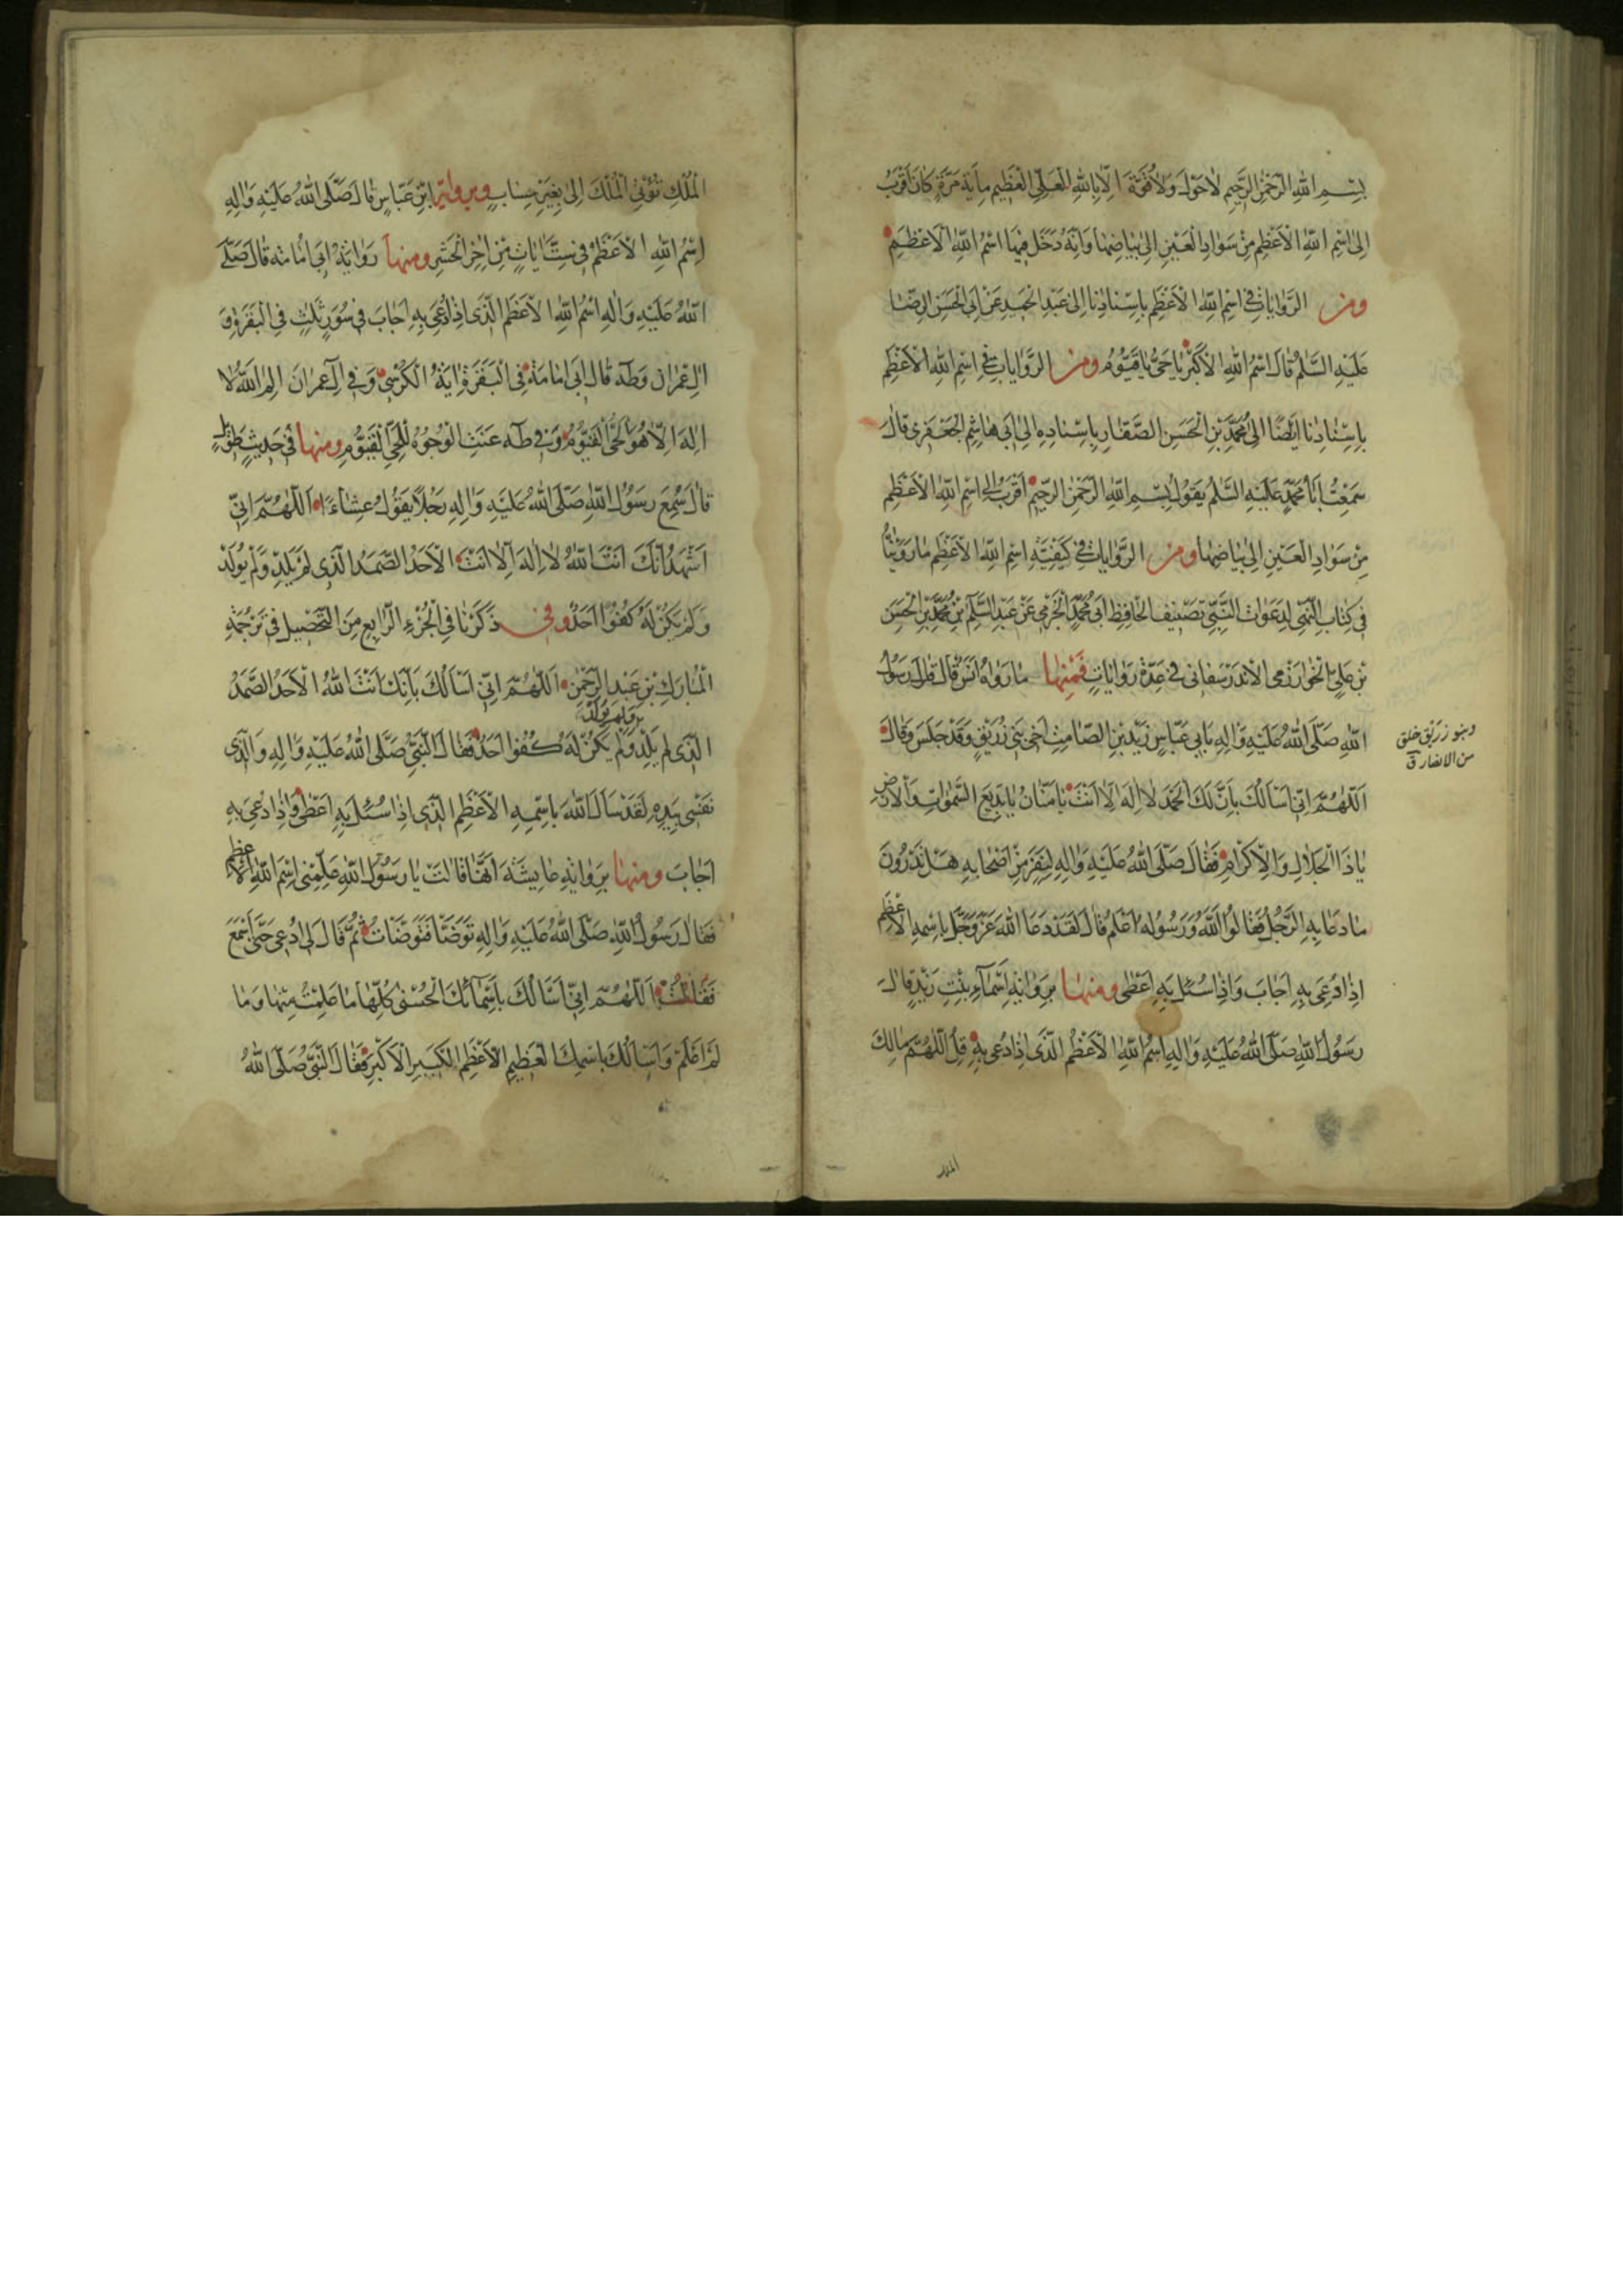 بِسْمِ اللهِ الرَّحْمٰنِ الرَّحِيمِ لاحَوْلَ وَلاقُوَّةَ اِلاّ بِاللهِ الْعَلِيِّ الْعَظِيمِ مِايَةَ مَرَّةٍ كانَ اَقْرَبَ
اِلىَ اسْمِ اللهِ الْاَعْظَمِ مِنْ سَوادِ الْعَيْنِ اِلىٰ بَياضِهٰا وَاَنَّهُ دَخَلَ فيهٰا اسْمُ اللهِ الْاَعْظَمِ
ومن الرَّوٰاياتِ في اسْمِ اللهِ الْاَعْظَمِ بِاِسْنٰادِنٰا اِلىٰ عَبْدِ الْحَميدِ عَنْ اَبِى الْحَسَنِ الرِّضٰا
عَلَيْهِ السَّلٰمُ قٰالَ اسْمُ اللهِ الْاَكْبَرُ يٰاحَىُّ يٰاقَيُّومُ ومن الرِّوٰايٰاتِ في اسْمِ اللهِ الْاَعْظَمِ
بِاِسْنٰادِنٰا اَيْضًا اِلىٰ مُحَمَّدِ بْنِ الْحَسَنِ الصَّفّٰارِ بِاِسْنٰادِهِ اِلىٰ اَبى هٰاشِمِ الْجَعْفَرى قٰالَ
سَمِعْتُ اَبٰا مُحَمَّدٍ عَلَيْهِ السَّلٰمُ يَقُولُ بِسْمِ اللهِ الرَّحْمٰنِ الرَّحِيمِ اَقْرَبُ اِلىَ اسْمِ اللهِ الْاَعْظَمِ
مِنْ سَوادِ الْعَيْنِ اِلىٰ بَيٰاضِهٰا ومن الرِّوٰايٰاتِ في كَيْفِيَّةِ اسْمِ اللهِ الْاَعْظَمِ مٰارَوَيْنٰاهُ
في كِتٰابِ الْبَهِىّ لِدَعَوٰاتِ النَّبِىِّ تَصْنيفِ الْحٰافِظِ اَبى مُحَمَّدٍ الْحَرَمى عَنْ عَبْدِ السَّلٰمِ بْنِ مُحَمَّدِ بْنِ الْحَسَنِ
بْنِ عَلِىٍّ الْخوارَزْمى الْاَنْدَرَسْفانى في عِدَّةِ رَوٰايٰاتٍ فَمِنْهٰا مٰا رَوٰاهُ اَنَسٌ قٰالَ قٰالَ رَسُولُ
اللهِ صَلَّى اللهُ عَلَيْهِ وَاٰلِهِ بِاَبى عَبّٰاسٍ زَيْدِ بْنِ الصّٰامِتِ اَخى بَنى زُرَيْقٍ وَقَدْ جَلَسَ وَقٰالَ
وبنو زريق خلق
من الانصار ق
اَللّٰهُمَّ اِنّى اَسْاَلُكَ بِاَنَّ لَكَ الْحَمْدَ لٰا اِلٰهَ اِلّا اَنْتَ يٰامَنّٰانُ يٰابَديعَ السَّمٰوٰاتِ وَالْاَرْضِ
يٰاذَا الْجَلٰالِ وَالْاِكْرٰامِ فَقٰالَ صَلَّى اللهُ عَلَيْهِ وَاٰلِهِ لِنَفَرٍ مِنْ اَصْحٰابِهِ هَلْ تَدْرُونَ
مٰا دَعٰا بِهِ الرَّجُلُ فَقٰالُوا اللهُ وَرَسُولُهُ اَعْلَمُ قٰالَ لَقَدْ دَعَا اللهَ عَزَّ وَجَلَّ بِاسْمِهِ الْاَعْظَمِ
اِذٰا دُعِىَ بِهِ اَجٰابَ وَاِذٰا سُئِلَ بِهِ اَعْطىٰ ومنهٰا بِرَوٰايَةِ اَسْمٰاۤءِ بِنْتِ زَيْدٍ قٰالَ
رَسُولُ اللهِ صَلَّى اللهُ عَلَيْهِ وَاٰلِهِ اسْمُ اللهِ الْاَعْظَمُ الَّذى اِذٰا دُعِىَ بِهِ قُلِ اللّٰهُمَّ مٰالِكَ
الملك
الْمُلْكِ تُؤْتِى الْمُلْكَ اِلىٰ بِغَيْرِ حِسٰابٍ وبرواية ابْنِ عَبّٰاسٍ قٰالَ صَلَّى اللهُ عَلَيْهِ وَاٰلِهِ
اِسْمُ اللهِ الْاَعْظَمُ في سِتِّ اٰيٰاتٍ مِنْ اٰخِرِ الْحَشْرِ ومنهٰا رَوٰايَةُ اَبى اُمٰامَةَ قٰالَ صَلَّى
اللهُ عَلَيْهِ وَاٰلِهِ اسْمُ اللهِ الْاَعْظَمِ الَّذى اِذٰا دُعِىَ بِهِ اَجٰابَ في سُوَرٍ ثَلٰثٍ فِى الْبَقَرَةِ وَ
اٰلِ عِمْرٰانَ وَطٰهٰ قٰالَ اَبى اُمٰامَةَ فِى الْبَقَرَةِ اٰيَةُ الْكُرْسِىِّ وَفى اٰلِ عِمْرٰانَ الٓمٓ اللهُ لٰا
اِلٰهَ اِلّا هُوَ الْحَىُّ الْقَيُّومُ وَفى طٰهٰ عَنَتِ الْوُجُوهُ لِلْحَىِّ الْقَيُّومِ ومنهٰا في حَديثٍ طَويلٍ
قٰالَ سَمِعَ رَسُولُ اللهِ صَلَّى اللهُ عَلَيْهِ وَاٰلِهِ رَجُلًا يَقُولُ عِشٰاءً اَللّٰهُمَّ اِنّى
اَشْهَدُ اَنَّكَ اَنْتَ اللهُ لٰا اِلٰهَ اِلّا اَنْتَ الْاَحَدُ الصَّمَدُ الَّذى لَمْ يَلِدْ وَلَمْ يُولَدْ
وَلَمْ يَكُنْ لَهُ كُفُوًا اَحَدٌ وفى ذَكَرْنٰا فِى الْجُزْءِ الرّٰابِعِ مِنَ التَّحْصيلِ في تَرْجُمَةِ
الْمُبٰارَكِ بْنِ عَبْدِ الرَّحْمٰنِ اَللّٰهُمَّ اِنّى اَسْاَلُكَ بِاَنَّكَ اَنْتَ اللهُ الْاَحَدُ الصَّمَدُ
الَّذى لَمْ يَلِدْ وَلَمْ يُولَدْ وَلَمْ يَكُنْ لَهُ كُفُوًا اَحَدٌ فَقٰالَ النَّبِىُّ صَلَّى اللهُ عَلَيْهِ وَاٰلِهِ وَالَّذى
نَفْسى بِيَدِهِ لَقَدْ سَاَلَ اللهَ بِاسْمِهِ الْاَعْظَمِ الَّذى اِذٰا سُئِلَ بِهِ اَعْطىٰ وَاِذٰا دُعِىَ بِهِ
اَجٰابَ ومنهٰا بِرَوٰايَةِ عٰايِشَةَ اَنَّهٰا قٰالَتْ يٰا رَسُولَ اللهِ عَلِّمْنِى اسْمَ اللهِ الْاَعْظَمَ
فَقٰالَ رَسُولُ اللهِ صَلَّى اللهُ عَلَيْهِ وَاٰلِهِ تَوَضَّاْ فَتَوَضَّاْتُ ثُمَّ قٰالَ لى اُدْعى حَتّىٰ اَسْمَعَ
فَقُلْتُ اَللّٰهُمَّ اِنّى اَسْاَلُكَ بِاَسْمٰائِكَ الْحُسْنىٰ كُلِّهٰا مٰا عَلِمْتُ مِنْهٰا وَمٰا
لَمْ اَعْلَمْ وَاَسْاَلُكَ بِاسْمِكَ الْعَظيمِ الْاَعْظَمِ الْكَبيرِ الْاَكْبَرِ فَقٰالَ النَّبِىُّ صَلَّى اللهُ